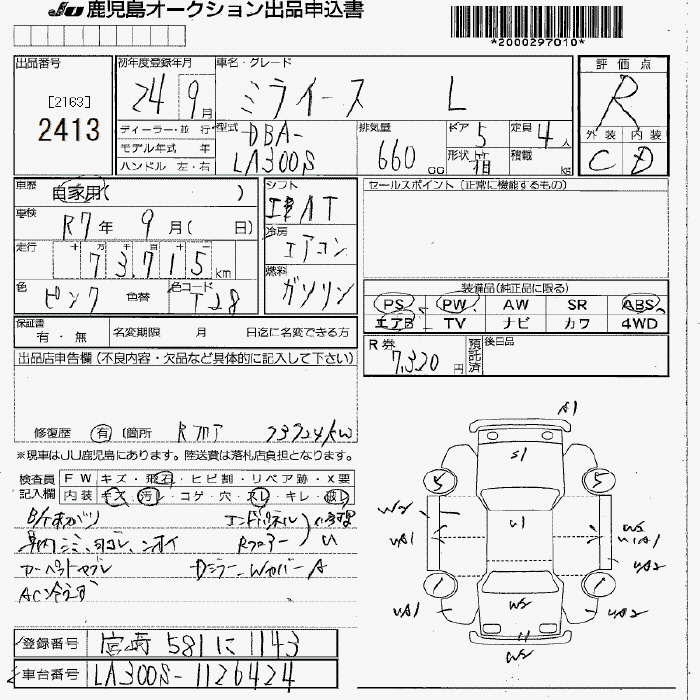 JU 鹿児島オークション出品申込書
*2000297010*
出品番号
[2163]
2413
初年度登録年月
24 9月
車名・グレード
ミライース L
評価点
R
外装 内装
C D
ディーラー・並行
モデル年式 年
ハンドル 左・右
型式
DBA-
LA300S
排気量
660 cc
ドア 5
定員 4人
形状 箱
積載 kg
車歴
自家用( )
車検
R7年 9月( 日)
走行
十 万 千 百 十 一
73,715 km
色 ピンク 色替
色コード T28
シフト
AT
冷房
エアコン
燃料
ガソリン
セールスポイント(正常に機能するもの)
装備品(純正品に限る)
PS PW AW SR ABS
エアB TV ナビ カワ 4WD
保証書
有・無
名変期限 月 日迄に名変できる方
R券
7,320円
預託済
後日品
出品店申告欄(不良内容・欠品など具体的に記入して下さい)
修復歴 有 (箇所
※現車はJU鹿児島にあります。陸送費は落札店負担となります。
検査員記入欄
FW キズ・飛石・ヒビ割・リペア跡・X要
内装 キズ・汚レ・コゲ・穴・スレ・キレ・破レ
エンドパネル
車内シミ、ヨゴレ、ニオイ
Rフロアー
Dミラー、Wカバー A
A1
S1
5 5
W2
U1
UA1
W2
U1A1
UA2
1 1
UA1
W2
UA2
W2
登録番号 宮崎 581 に 1143
車台番号 LA300S-1126424